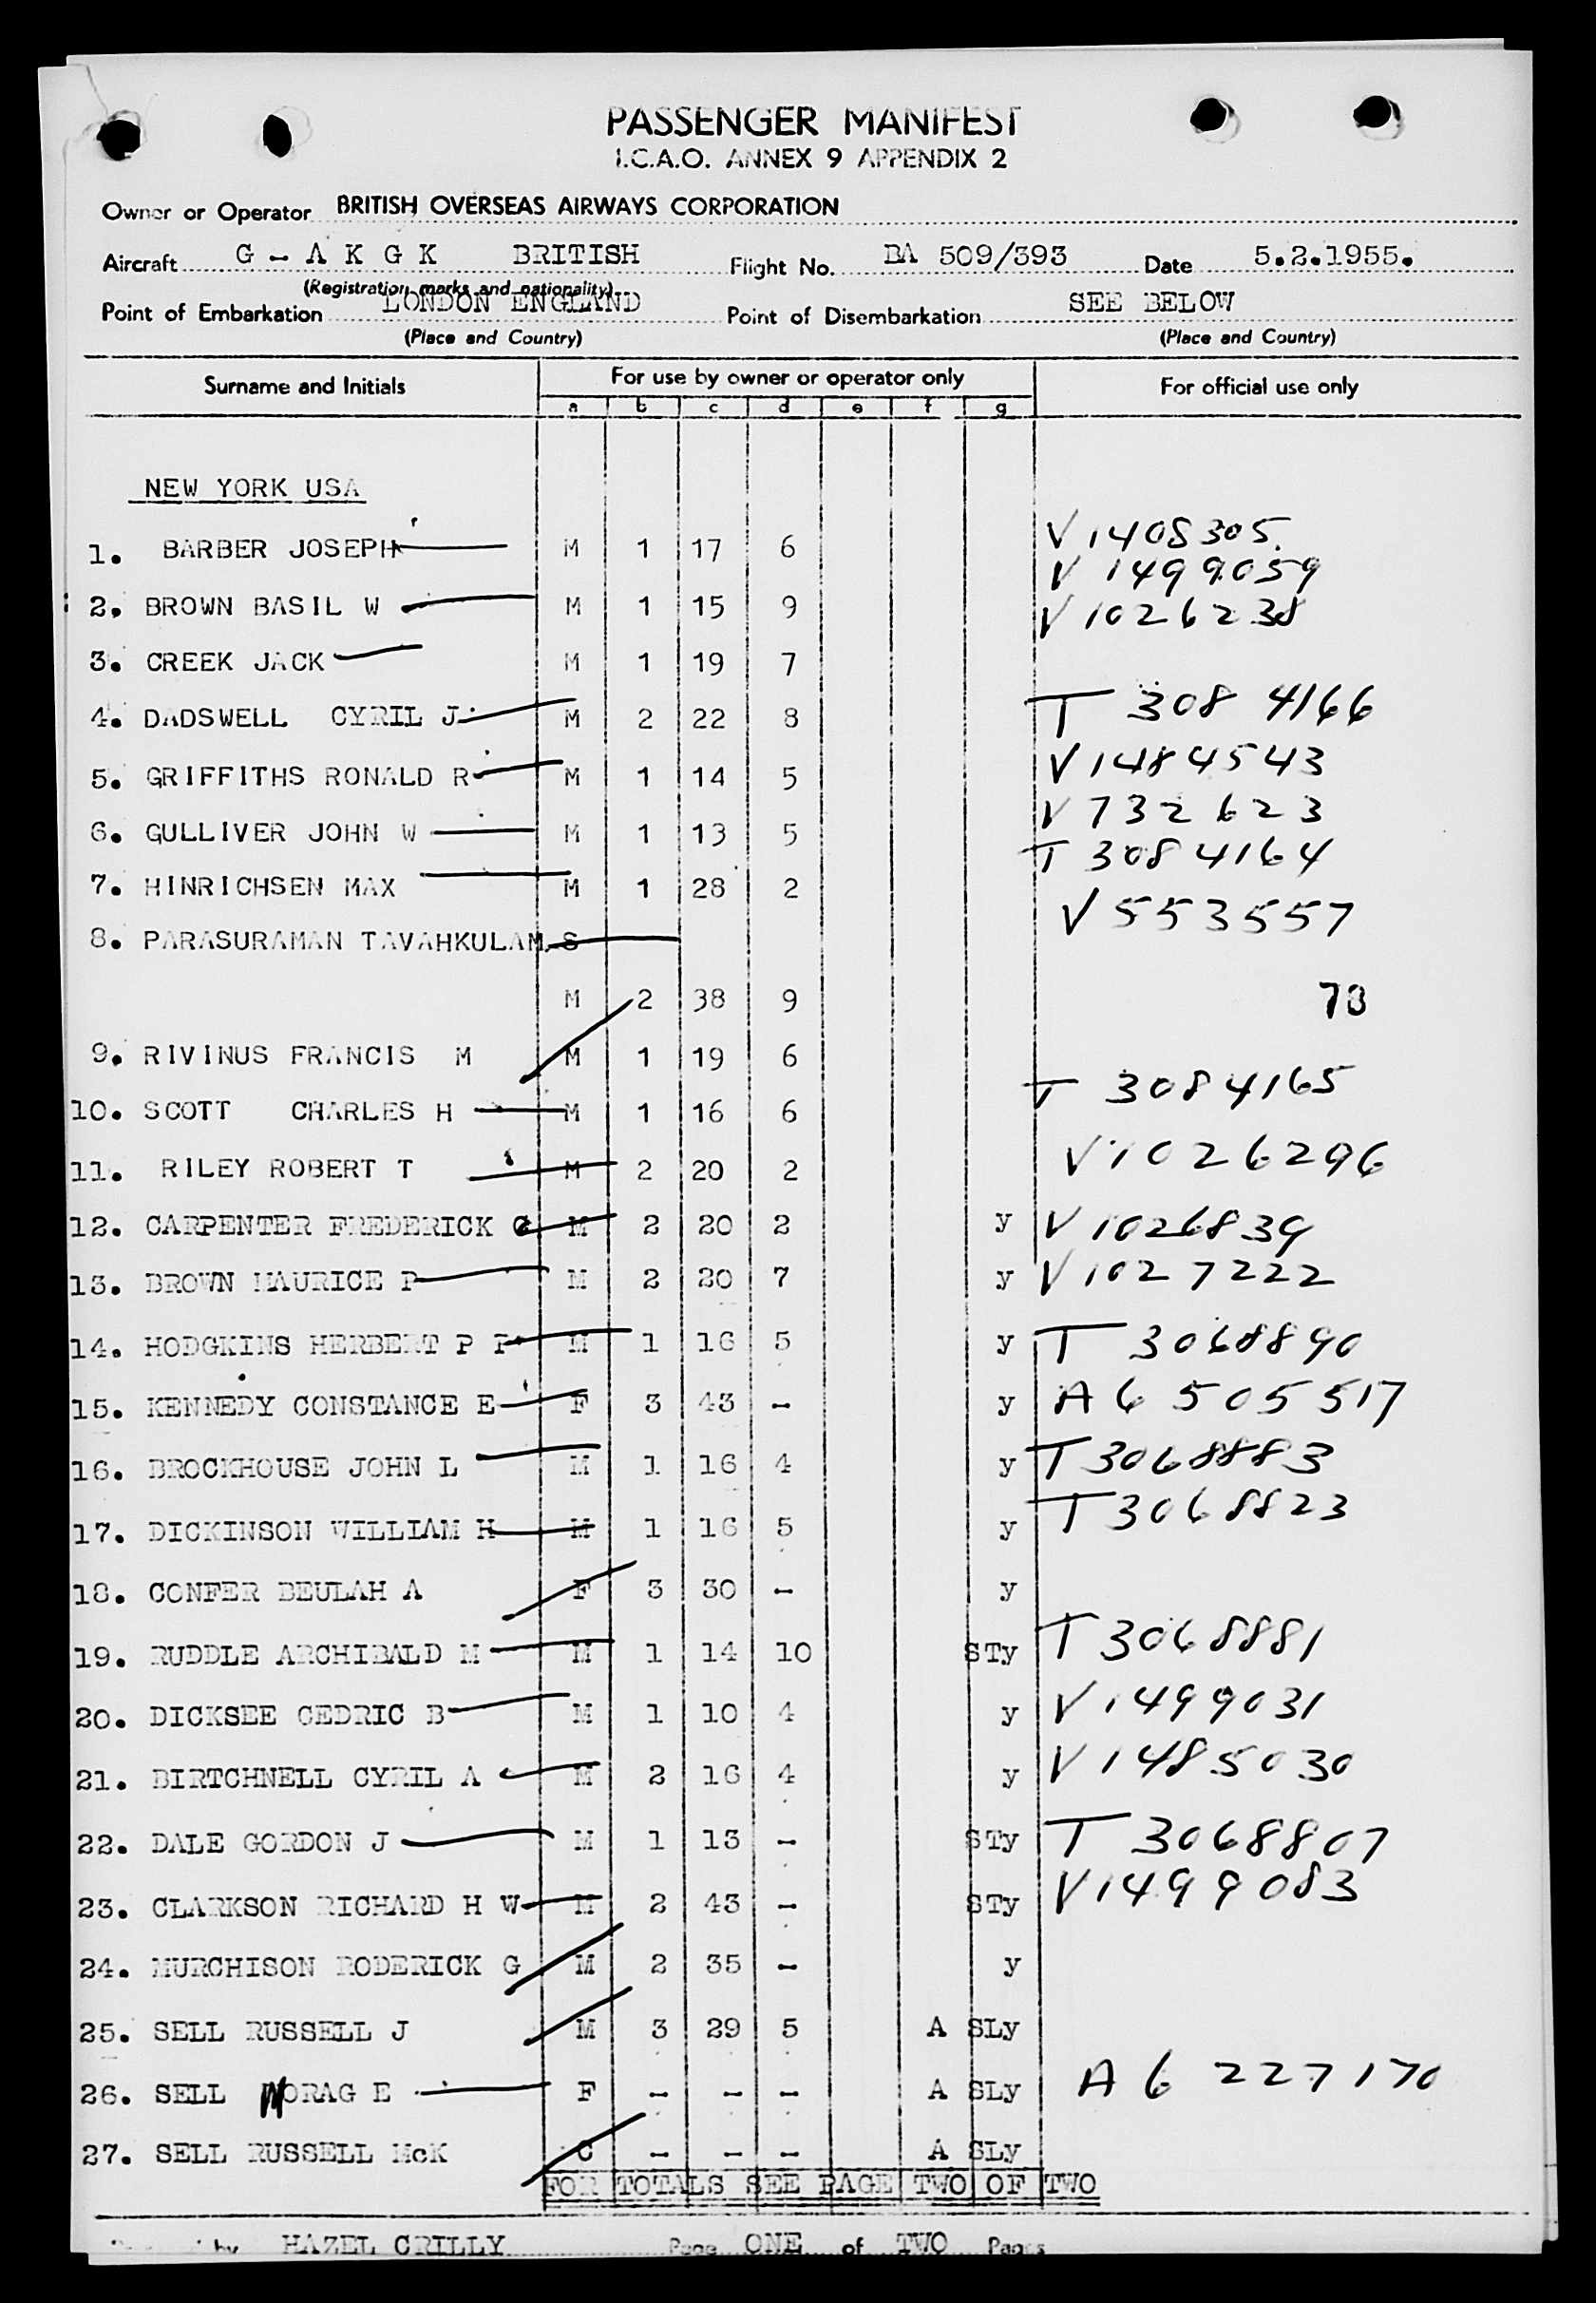 PASSENGER MANIFEST
I.C.A.O. ANNEX 9 APPENDIX 2
Owner or Operator BRITISH OVERSEAS AIRWAYS CORPORATION
Aircraft G - A K G K BRITISH Flight No. BA 509/393 Date 5.2.1955.
(Registration marks and nationality)
Point of Embarkation LONDON ENGLAND Point of Disembarkation SEE BELOW
(Place and Country) (Place and Country)
Surname and Initials For use by owner or operator only For official use only
a b c d e f g
NEW YORK USA
1. BARBER JOSEPH M 1 17 6 V 1408305
V 1499059
2. BROWN BASIL W M 1 15 9 V 1026238
3. CREEK JACK M 1 19 7
4. DADSWELL CYRIL J M 2 22 8 T 308 4166
5. GRIFFITHS RONALD R M 1 14 5 V 1484543
6. GULLIVER JOHN W M 1 13 5 V 732623
T 3084164
7. HINRICHSEN MAX M 1 28 2 V 553557
8. PARASURAMAN TAVAHKULAM S
M 2 38 9 73
9. RIVINUS FRANCIS M M 1 19 6
10. SCOTT CHARLES H M 1 16 6 T 3084165
11. RILEY ROBERT T M 2 20 2 V 1026296
12. CARPENTER FREDERICK G M 2 20 2 y V 1026839
13. BROWN MAURICE P M 2 20 7 y V 1027222
14. HODGKINS HERBERT P P M 1 16 5 y T 3068890
15. KENNEDY CONSTANCE E F 3 43 - y A 6 505 517
16. BROCKHOUSE JOHN L M 1 16 4 y T 3068883
17. DICKINSON WILLIAM H M 1 16 5 y T 3068823
18. CONFER BEULAH A F 3 30 - y
19. RUDDLE ARCHIBALD M M 1 14 10 STy T 3068881
20. DICKSEE CEDRIC B M 1 10 4 y V 1499031
21. BIRTCHNELL CYRIL A M 2 16 4 y V 1485030
22. DALE GORDON J M 1 13 - STy T 3068807
23. CLARKSON RICHARD H W M 2 43 - STy V 1499083
24. MURCHISON RODERICK G M 2 35 - y
25. SELL RUSSELL J M 3 29 5 A SLy
26. SELL MORAG E F - - - A SLy A 6 227170
27. SELL RUSSELL McK C - - - A SLy
FOR TOTALS SEE PAGE TWO OF TWO
by HAZEL CRILLY Page ONE of TWO Pages